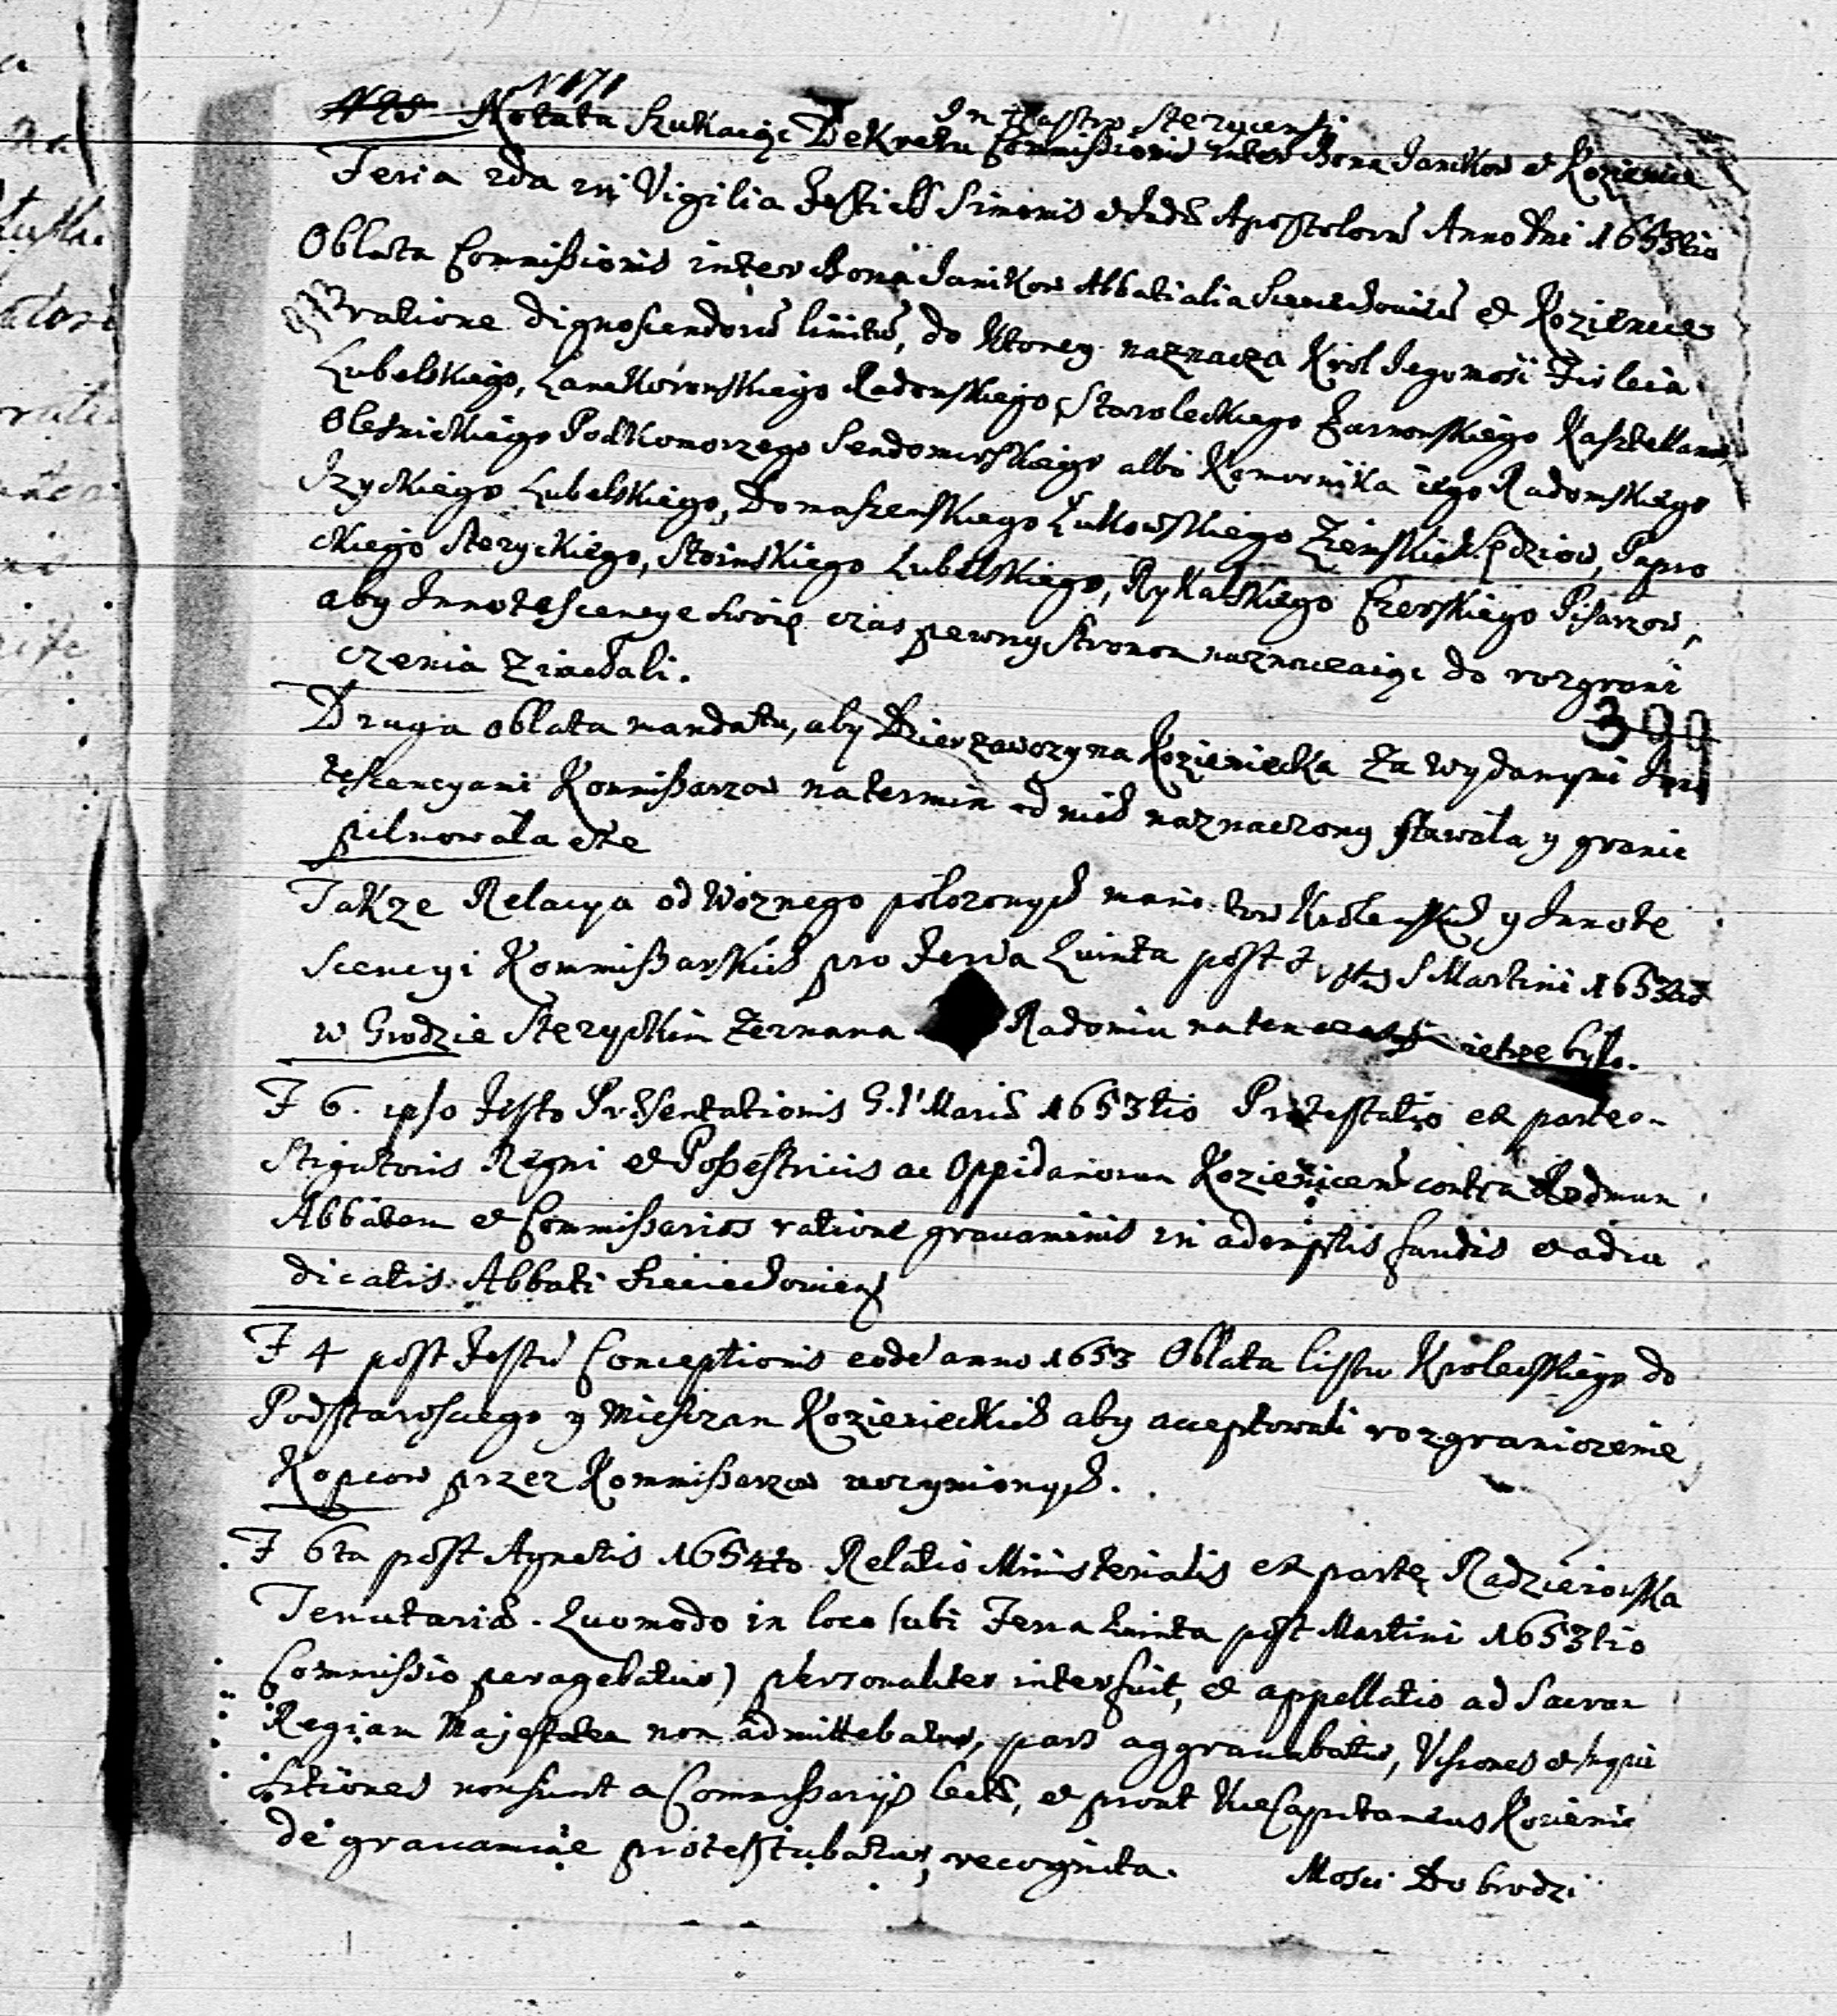 N 171
N 28 Notata Szukaiąc Dekretu Commissionis inter Bona Janikow et Kozienice
In Castro Stezycensi
Feria 2da in Vigilia Festi SS Simonis et Judæ Apostolorū Anno Dni 1653tio
Oblata Commissionis inter Bona Janikow Abbatialia Sieciechoviensiū et Kozienice
ratione dignoscendorū limitū, do ktorey naznacza Krol Jegomość Firleia
Lubelskiego, Lanckoronskiego Radomskiego, Starołeckiego Żarnowskiego Kasztellanow
Olesnickiego Podkomorzego Sendomirskiego albo Komornika iego Radomskiego
Izyckiego Lubelskiego, Domaszewskiego Łukowskiego Ziemskich Sędziow, Papro
ckiego Stezyckiego, Stoinskiego Lubelskiego, Rykalskiego Czerskiego Pisarzow,
aby Innotescencye swoię czas pewny Stronom naznaczaiąc do rozgrani
czenia Ziachali.
399
Druga oblata mandatu, aby Dzierzawczyna Kozieniecka za wydanymi Inno
tescencyami Kommissarzow na termin od nich naznaczony stawała y granic
pilnowała etc
Także Relacya od Woznego położonych mandatow Krolewskich y Innote
scencyi Kommissarskich pro Feria Quinta post Festum S Martini 1653tio
w Grodzie Stezyckim Zeznana Radomiu na ten czas było.
F 6. ipso Festo Præsentationis B. V. Mariæ 1653tio Protestatio ex parte In
stigatoris Regni et Possestricis ac Oppidanorum Koziniecens contra Rndmum
Abbatem et Commissarios ratione grauaminis in ademptis fundis et adiu
dicatis Abbati Sieciechoviens
F 4 post Festū Conceptionis eodē anno 1653 Oblata listu Krolewskiego do
Podstarosciego y Mieszczan Kozienieckich aby acceptowali rozgraniczenie
Kopcow przez Kommissarzow uczynionych.
F 6ta post Agnetis 1654to Relatio Ministerialis ex parte Radzieiowska
Tenutariæ. Quomodo in loco (ubi Feria Quinta post Martini 1653tio
Commissio peragebatur) personaliter interfuit, et appellatio ad Sacram
Regiam Majestatem non admittebatur, pars aggrauabatur, Visiones et Inqui
sitiones non sunt a Commissarijs lectæ, et prout Vicecapitaneus Kozienic
de grauamine protestabatur, recognita.
Mosci Dobrodzi